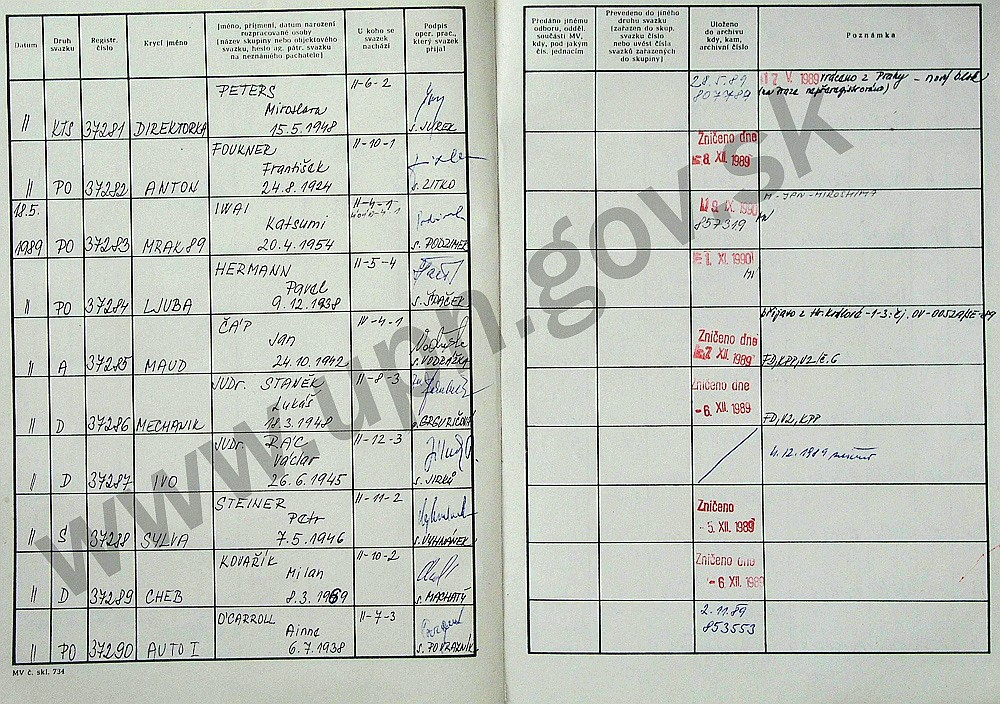 Datum
Druh svazku
Registr. číslo
Krycí jméno
Jméno, příjmení, datum narození rozpracované osoby (název skupiny nebo objektového svazku, heslo ag. pátr. svazku na neznámého pachatele)
U koho se svazek nachází
Podpis oper. prac., který svazek přijal
Předáno jinému odboru, odděl. součásti MV, kdy, pod jakým čís. jednacím
Převedeno do jiného druhu svazku (zařazen do skup. svazku číslo nebo uvést čísla svazků zařazených do skupiny)
Uloženo do archivu kdy, kam, archivní číslo
Poznámka
PETERS II-6-2 28.5.89 17 V. 1989 vráceno z Prahy - nový
Miroslava 807789
II KTS 37281 DIREKTORKA 15.5.1948 s. JUREK
FOUKNER II-10-1 Zničeno dne
František -8. XII. 1989
II PO 37282 ANTON 24.8.1924 s. ZITKO
18.5. IWAI II-4-1 M-JPN-HIROSHIMA
Katsumi 19. IX. 1990
1989 PO 37283 MRAK 89 20.4.1954 s. PODZIMEK 857319
HERMANN II-5-4 -1. XI. 1990
Pavel
II PO 37284 LJUBA 9.12.1938
ČÁP IV-4-1 přijato z Hr. Králové -1-3: čj. OV-00529/SE-89
Jan Zničeno dne
II A 37285 MAUD 24.10.1942 s. VODRÁŽKA -7. XII. 1989 FD, KPP, V2/E, G
JUDr. STANĚK II-8-3 Zničeno dne
Lukáš -6. XII. 1989
II D 37286 MECHANIK 18.3.1948 FD, V2, KPP
JUDr. RÁC II-12-3 4.12.1989
Václav
II D 37287 IVO 26.6.1945 s. JIRKŮ
STEINER II-11-2 Zničeno
Petr -5. XII. 1989
II Š 37288 SYLVA 7.5.1946 s. VYHNÁNEK
KOVAŘÍK II-10-2 Zničeno dne
Milan -6. XII. 1989
II D 37289 CHEB 8.3.1969 s. MACHATÝ
O'CARROLL II-7-3 2.11.89
Ainne 853553
II PO 37290 AUTO I 6.7.1938 s. POKRAZNÍK
MV č. skl. 734
www.upn.gov.sk